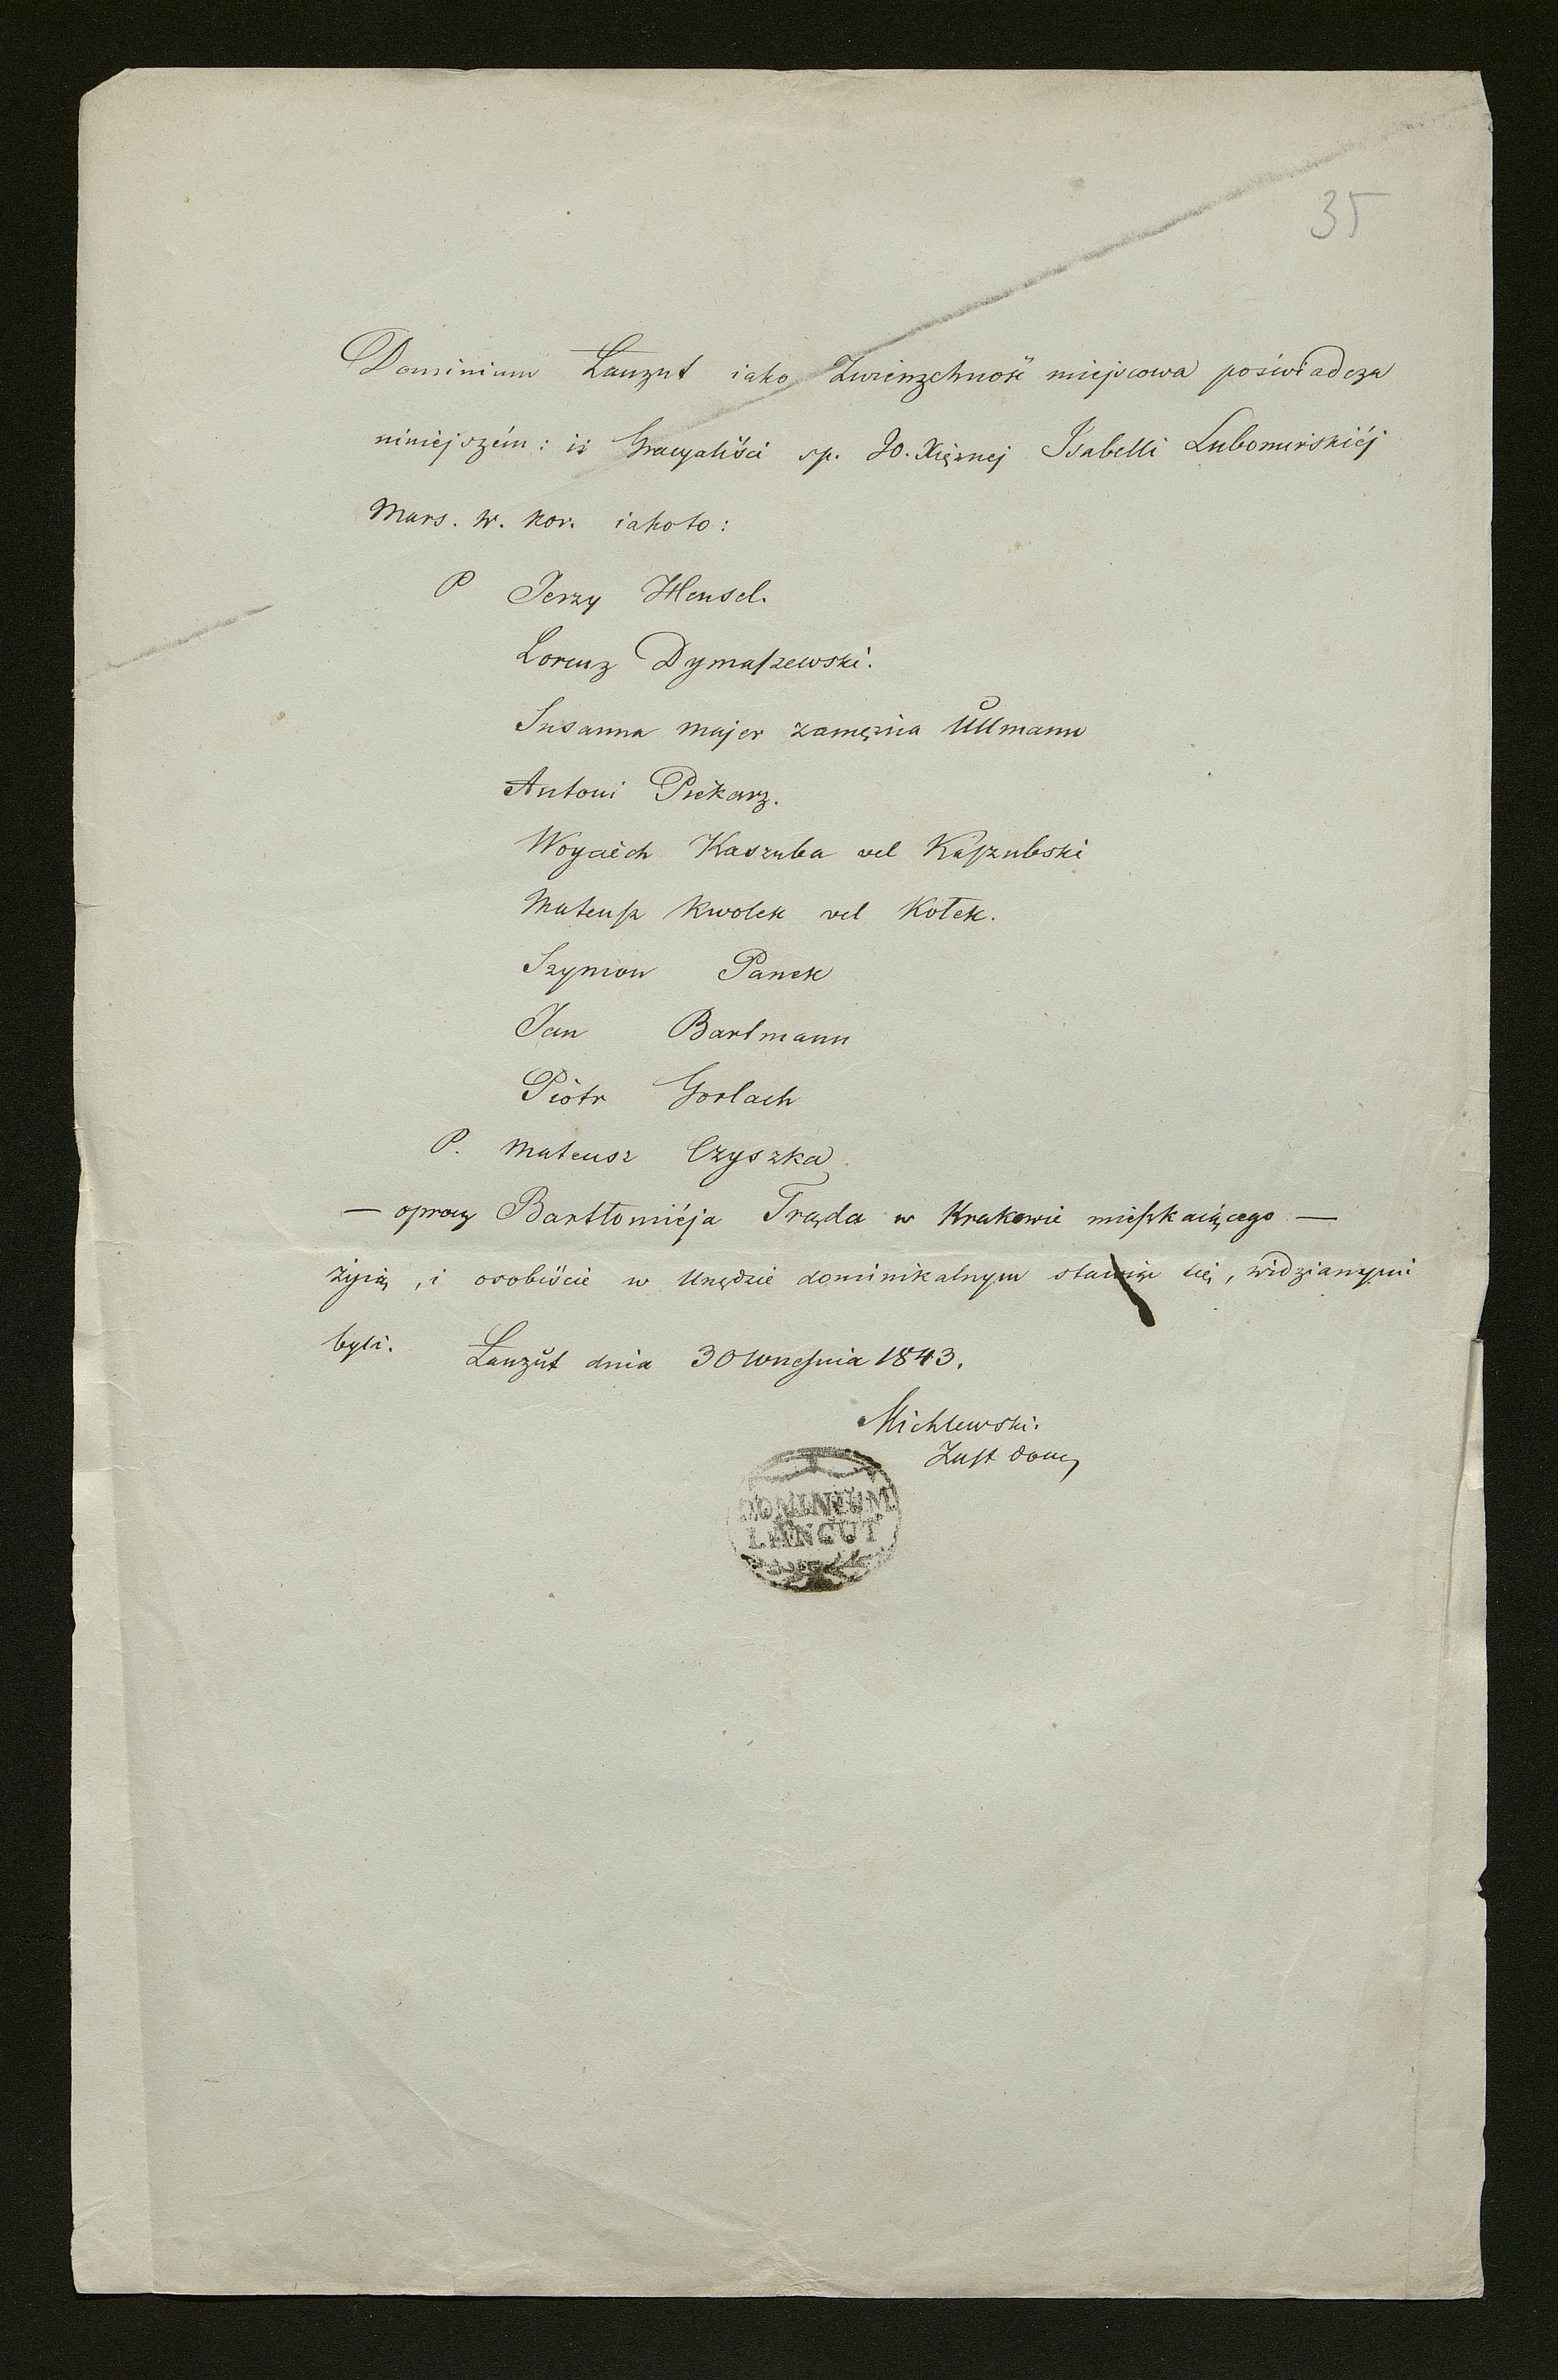 35
Dominium Łanzut iako Zwierzchność miejscowa poświadcza
niniejszém: iż Gracyaliści sp. JO. Xiężnej Isabelli Lubomirskiéj
Mars. W. Kor. iakoto:
P Jerzy Hensel.
Lorenz Dymaszewski.
Susanna Majer zamężna Ullmann
Antoni Piekarz.
Woyciech Kaszuba vel Kaszubski
Mateusz Kwolek vel Kołek.
Szymon Panek
Jan Bartmann
Piotr Gorlach
P. Mateusz Czyszka
— oprocz Barttłomiéja Trąda w Krakowie mieszkaiącego —
żyią, i osobiście w Urzędzie dominikalnym stawiąc się, widzianymi
byli. Łanzut dnia 30 Września 1843.
Michlewski.
Zast dom
DOMINIUM
LANCUT